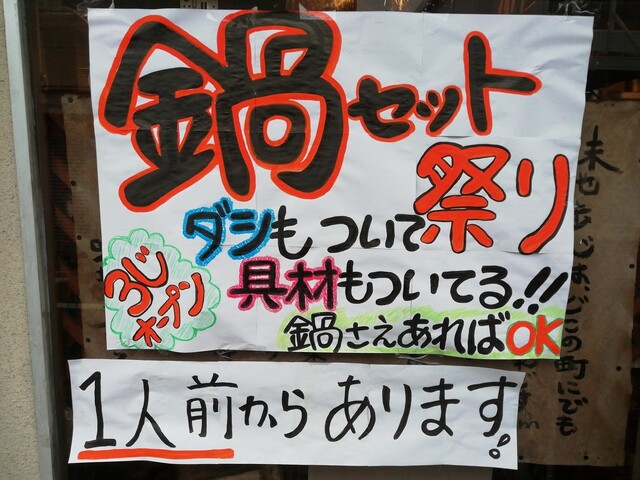 鍋セット
祭り
ダシもついて
具材もついてる!!
鍋さえあればOK
3じ
オープン
1人前からあります!
この町にでも